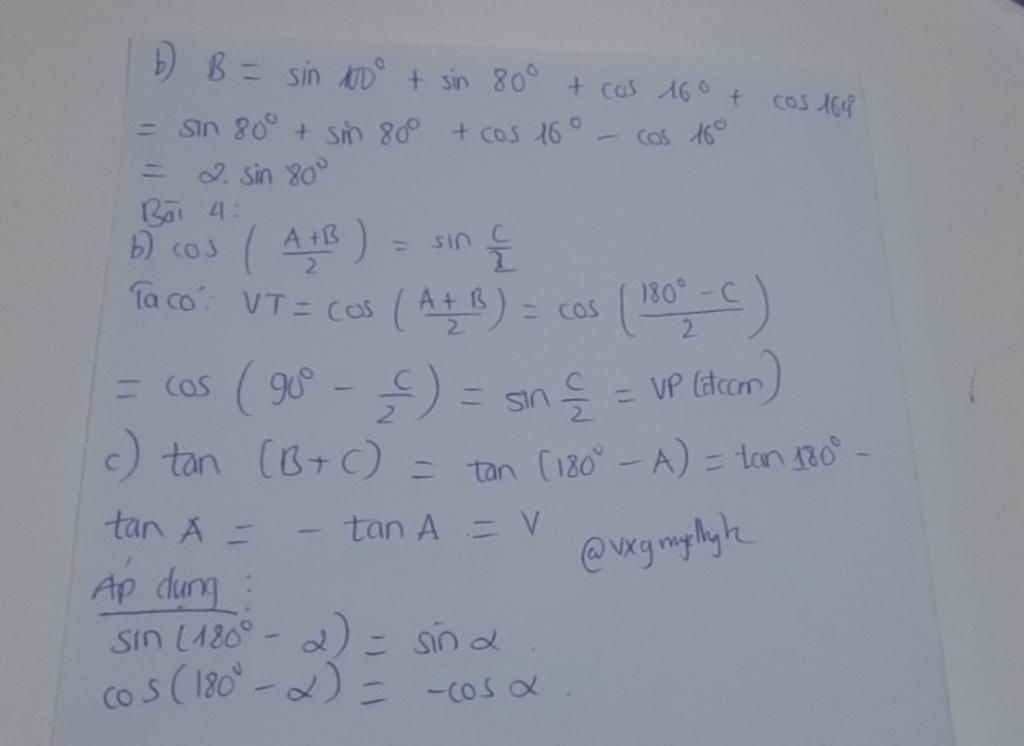 b) B = sin 100° + sin 80° + cos 16° + cos 164°
= sin 80° + sin 80° + cos 16° - cos 16°
= 2. sin 80°
Bài 4:
b) cos (A+B/2) = sin C/2
Ta có: VT = cos (A+B/2) = cos (180° - C/2)
= cos (90° - C/2) = sin C/2 = VP (đccm)
c) tan (B+C) = tan (180° - A) = tan 180° -
tan A = - tan A = V
@vxgmyllyh
Áp dụng :
sin (180° - α) = sin α.
cos (180° - α) = -cos α.